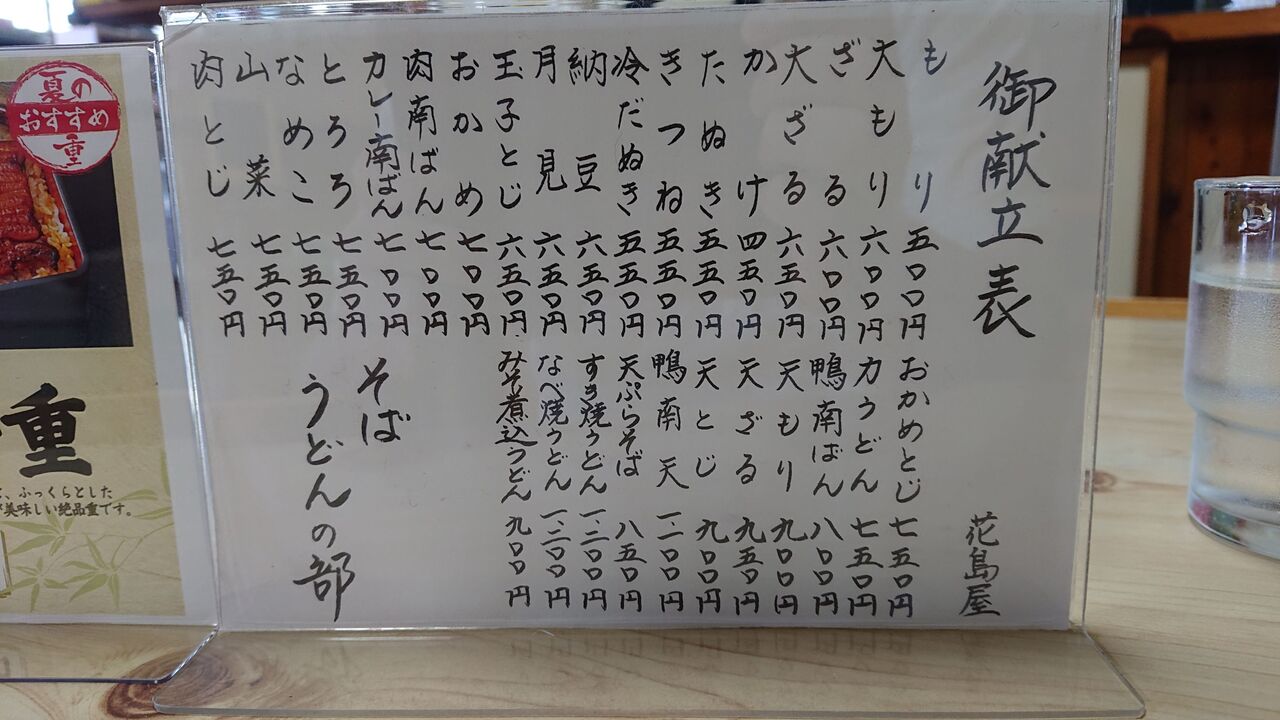 御献立表
花島屋
もり 五〇〇円
大もり 六〇〇円
ざる 六〇〇円
大ざる 六五〇円
かけ 四五〇円
たぬき 五五〇円
きつね 五五〇円
冷だぬき 五五〇円
納豆 六五〇円
月見 六五〇円
玉子とじ 六五〇円
おかめ 七〇〇円
肉南ばん 七〇〇円
カレー南ばん 七〇〇円
とろろ 七五〇円
なめこ 七五〇円
山菜 七五〇円
肉とじ 七五〇円
おかめとじ 七五〇円
力うどん 七五〇円
鴨南ばん 八〇〇円
天もり 九〇〇円
天ざる 九五〇円
天とじ 九〇〇円
鴨南天
天ぷらそば 八五〇円
すき焼うどん 一、二〇〇円
なべ焼うどん 一、二〇〇円
みそ煮込うどん 九〇〇円
そば
うどんの部
夏の
おすすめ
重
重
、ふっくらとした
美味しい絶品重です。